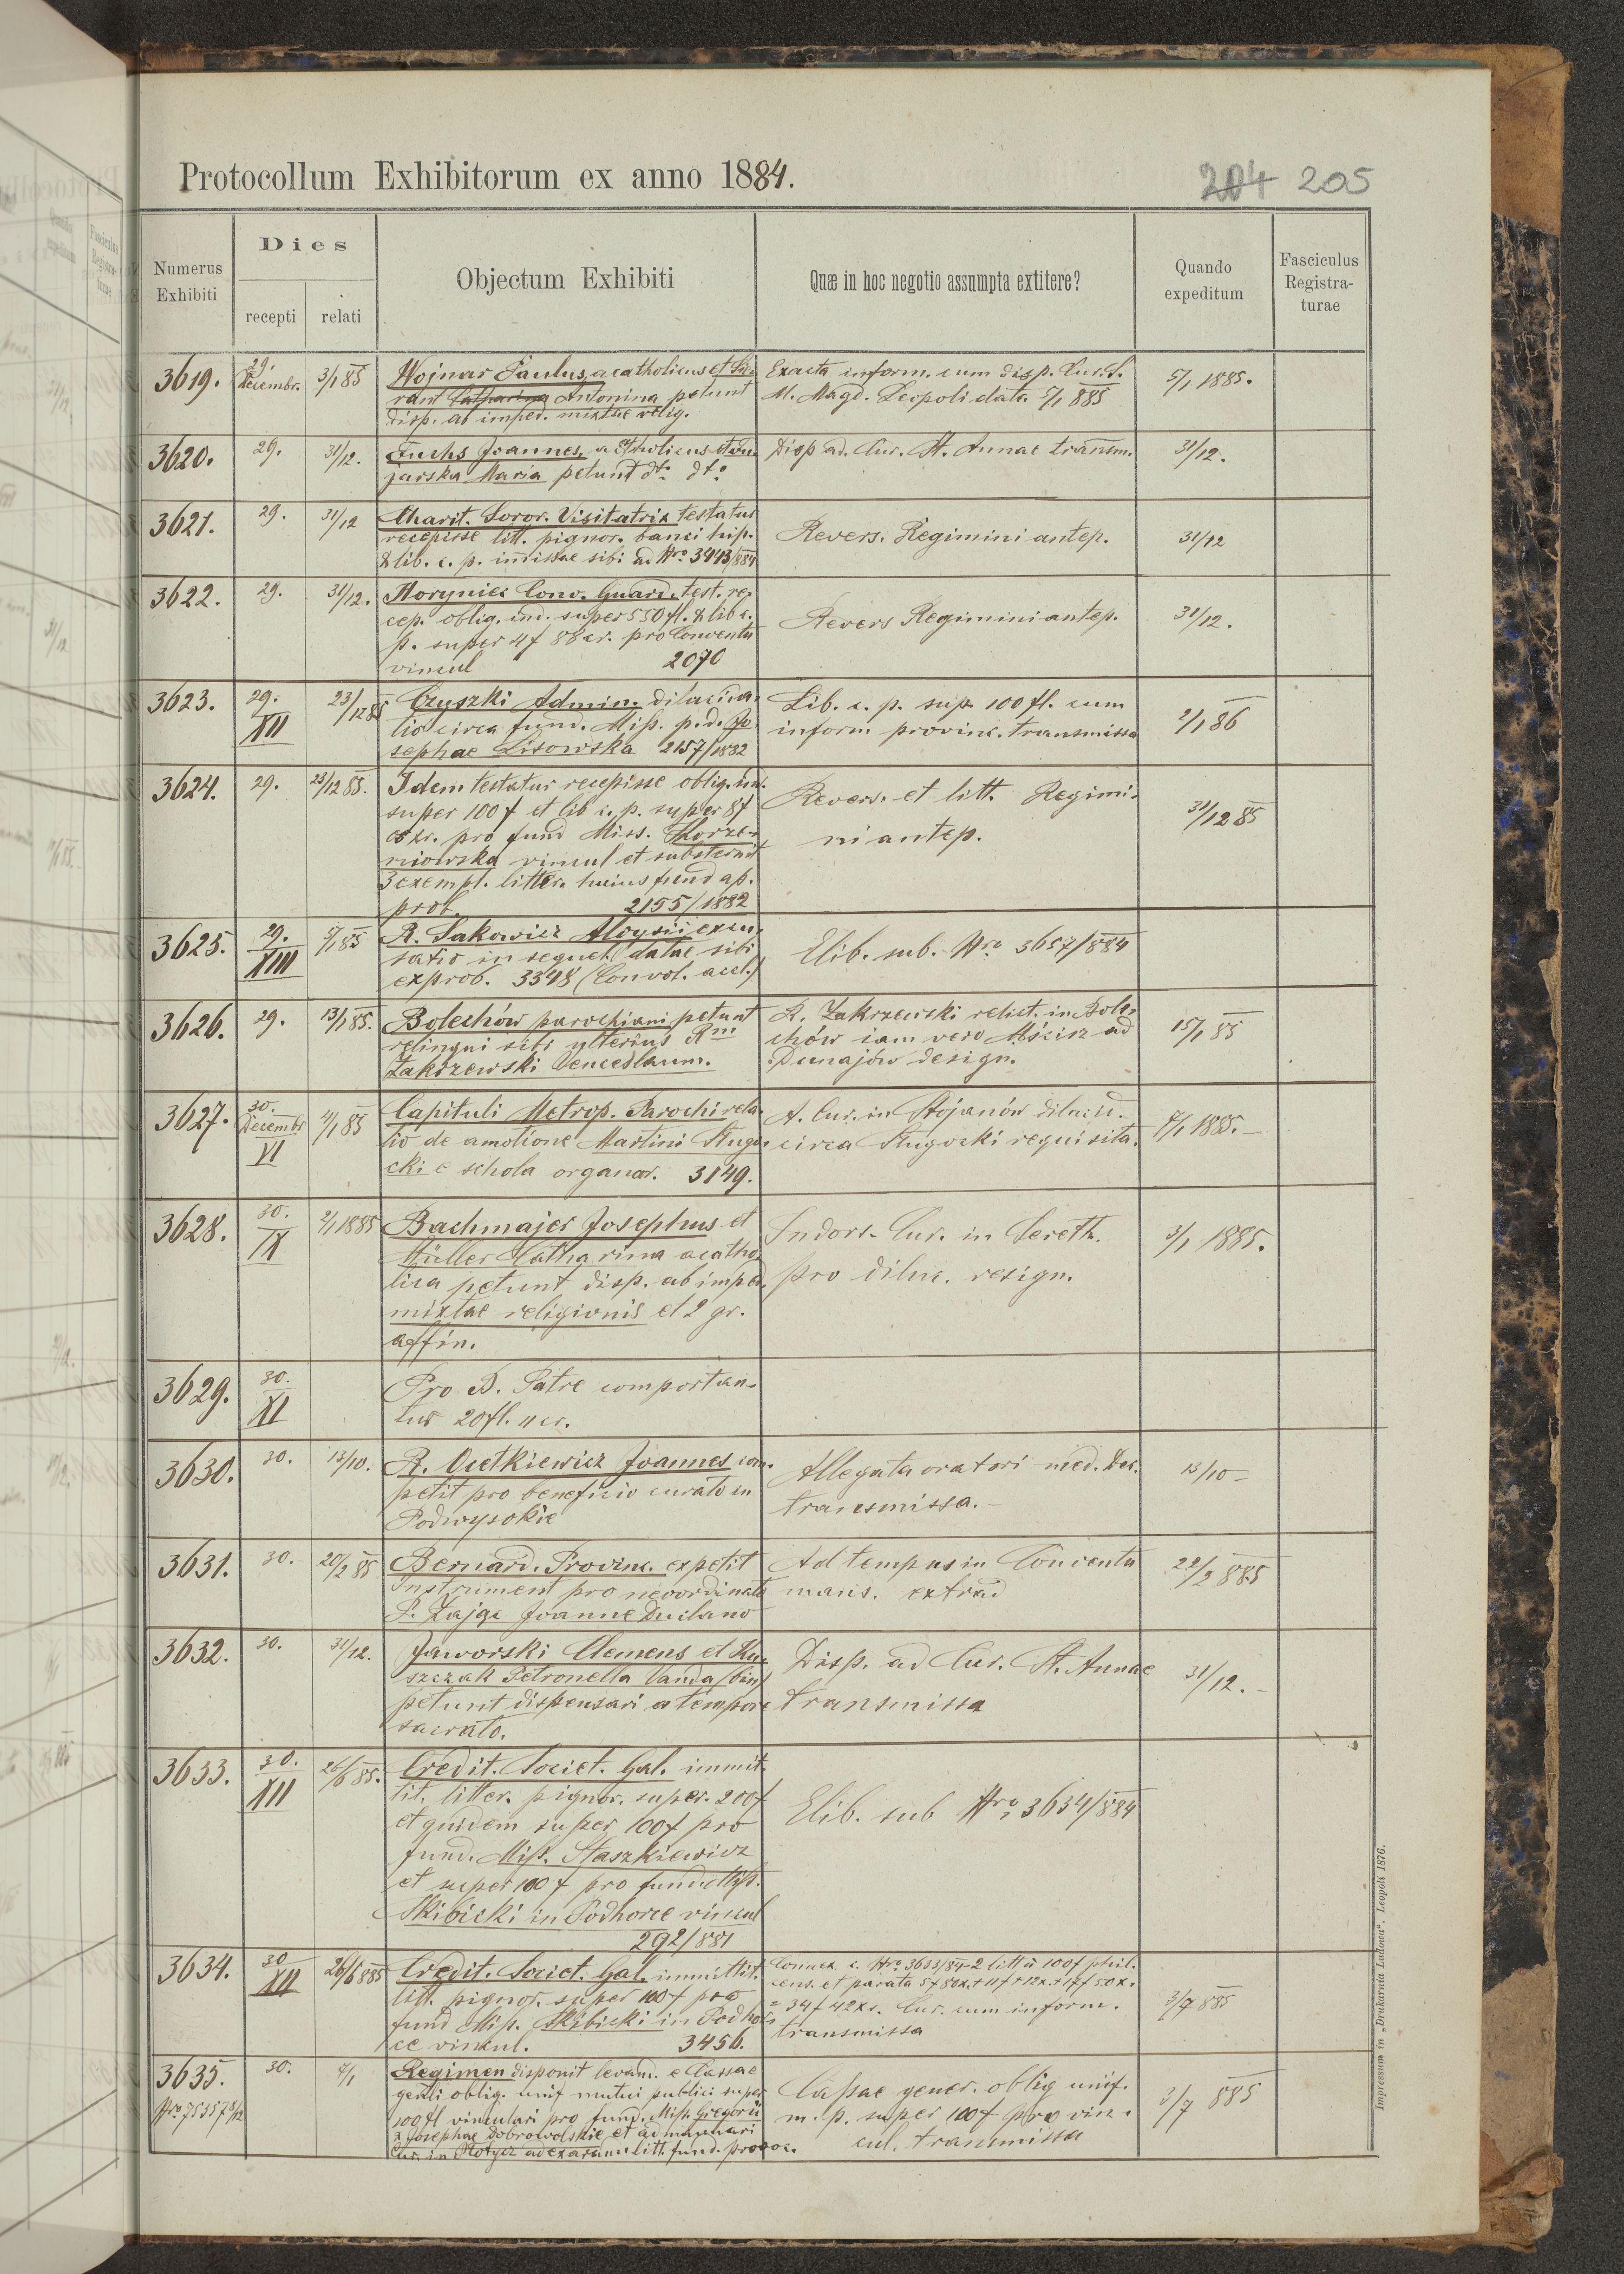 Protocollum Exhibitorum ex anno 1884.
204 205
Numerus Exhibiti
Dies
recepti
relati
Objectum Exhibiti
Quæ in hoc negotio assumpta extitere?
Quando expeditum
Fasciculus Registra-turae
3619.
29. Decembr.
3/1 85
Wojnar Paulus, acatholicus et
rant Catharina Antonina petunt
disp. ab imped. mixtae relig.
Exacta inform. cum disp. Cur. S.
M. Magd. Leopoli data 5/1 885
5/1 1885.
3620.
29.
31/12.
Fuchs Joannes, acatholicus et
jarska Maria petunt dto dto
Disp ad. Cur. St. Annae transm.
31/12.
3621.
29.
31/12
Charit. Soror. Visitatrix testatur
recepisse litt. pignor. banci hip.
& lib. c. p. missae sibi ad Nro 3413/884
Revers. Regimini antep.
31/12
3622.
29.
31/12.
Horyniec Conv. Guard. test. re-
cep. oblig. ind. super 550 fl. & lib c.
p. super 4f 88 cr. pro Conventu
vincul 2070
Revers Regimini antep.
31/12.
3623.
29. XII
23/12 85
Czyszki Admin. dilucida-
tio circa fund. Miss. p. d. Jo
sephae Lisowska 2157/1882
Lib. c. p. sup. 100 fl. cum
inform provinc. transmissa
2/1 86
3624.
29.
23/12 85.
Idem testatur recepisse oblig. ind.
super 100 f et lib c. p. super 8f
cr. pro fund Miss. Korze-
niowska vincul et substernit
3 exempl. litter. huius fund ap.
prob. 2155/1882
Revers. et litt. Regimi-
ni antep.
31/12 85
3625.
29. XIII
5/1 85
R. Sakowicz Aloysii excu-
satio in sequel. datae sibi
exprob. 3348 (Convol. accl.)
Elib. sub. Nro 3657/884
3626.
29.
13/1 85.
Bolechów parochiani petunt
relinqui sibi ulterius Rm
Zakrzewski Venceslaum.
R. Zakrzewski relict. in Bole-
chów iam vero Mścisz ad
Dunajów design.
15/1 85
3627.
30. Decembr VI
2/1 85
Capituli Metrop. Parochi rela-
tio de amotione Martini Slugo-
cki e schola organar. 3149.
A. Cur. in Stojanów dilucid.
circa Slugocki requisita.
7/1 1885.-
3628.
30. IX
2/1 1885
Bachmajer Josephus et
Müller Catharina acatho-
lica petunt disp. ab imped.
mixtae religionis et 2 gr.
affin.
Indors. Cur. in Sereth.
pro diluc. resign.
3/1 1885.
3629.
30. XI
Pro D. Patre comportan-
tur 20 fl. cr.
3630.
30.
13/10.
R. Ocetkiewicz Joannes com-
petit pro beneficio curato in
Podwysokie
Allegata oratori med. Dec.
transmissa.-
13/10-
3631.
30.
20/2 85
Bernard. Provinc. expetit
Instrument pro neoordinato
P. Zajge Joanne Duclano
Ad tempus in Conventu
mans. extrad
22/2 885
3632.
30.
31/12.
Jaworski Clemens et Ku-
szczak Petronella Vanda (bin)
petunt dispensari a tempore
sacrato.
Disp. ad Cur. St. Annae
transmissa
31/12.-
3633.
30. XII
26/6 85.
Credit. Societ. Gal. immit-
tit. litter. pignor. super. 200 f
et quidem super 100 f pro
fund. Miss. Staszkiewicz
et super 100 f pro fund. Miss.
Skibicki in Podhorce vincul
292/881
Elib. sub Nro 3634/884
3634.
30 XII
26/6 885
Credit. Societ. Gal. immittit.
litt. pignor. super 100 f pro
fund Miss. Skibicki in Podhor
ce vinkul. 3456.
Connex c. Nro 3633/84 2 litt à 100 f phil.
cens. et parata 5f 80x. + 11f + 12x + 17f 50x.
= 34 f 42 xr. Cur. cum inform.
transmissa
3/7 885
3635.
Nro 75357 8/12
30.
7/1
Regimen disponit levand. e Cassae
gerali oblig. unif mutui publici super
100 fl vinculari pro fund. Miss. Gregorii
& Josephae Dobrowolskie et ad manuari
Cur. in Płotycz ad exarand. litt. fund. provoc.
Cassae gener. oblig unif.
m. p. super 100 f pro vin-
cul. transmissa
3/7 885
Impressum in „Drukarnia Ludowa". Leopoli 1876.